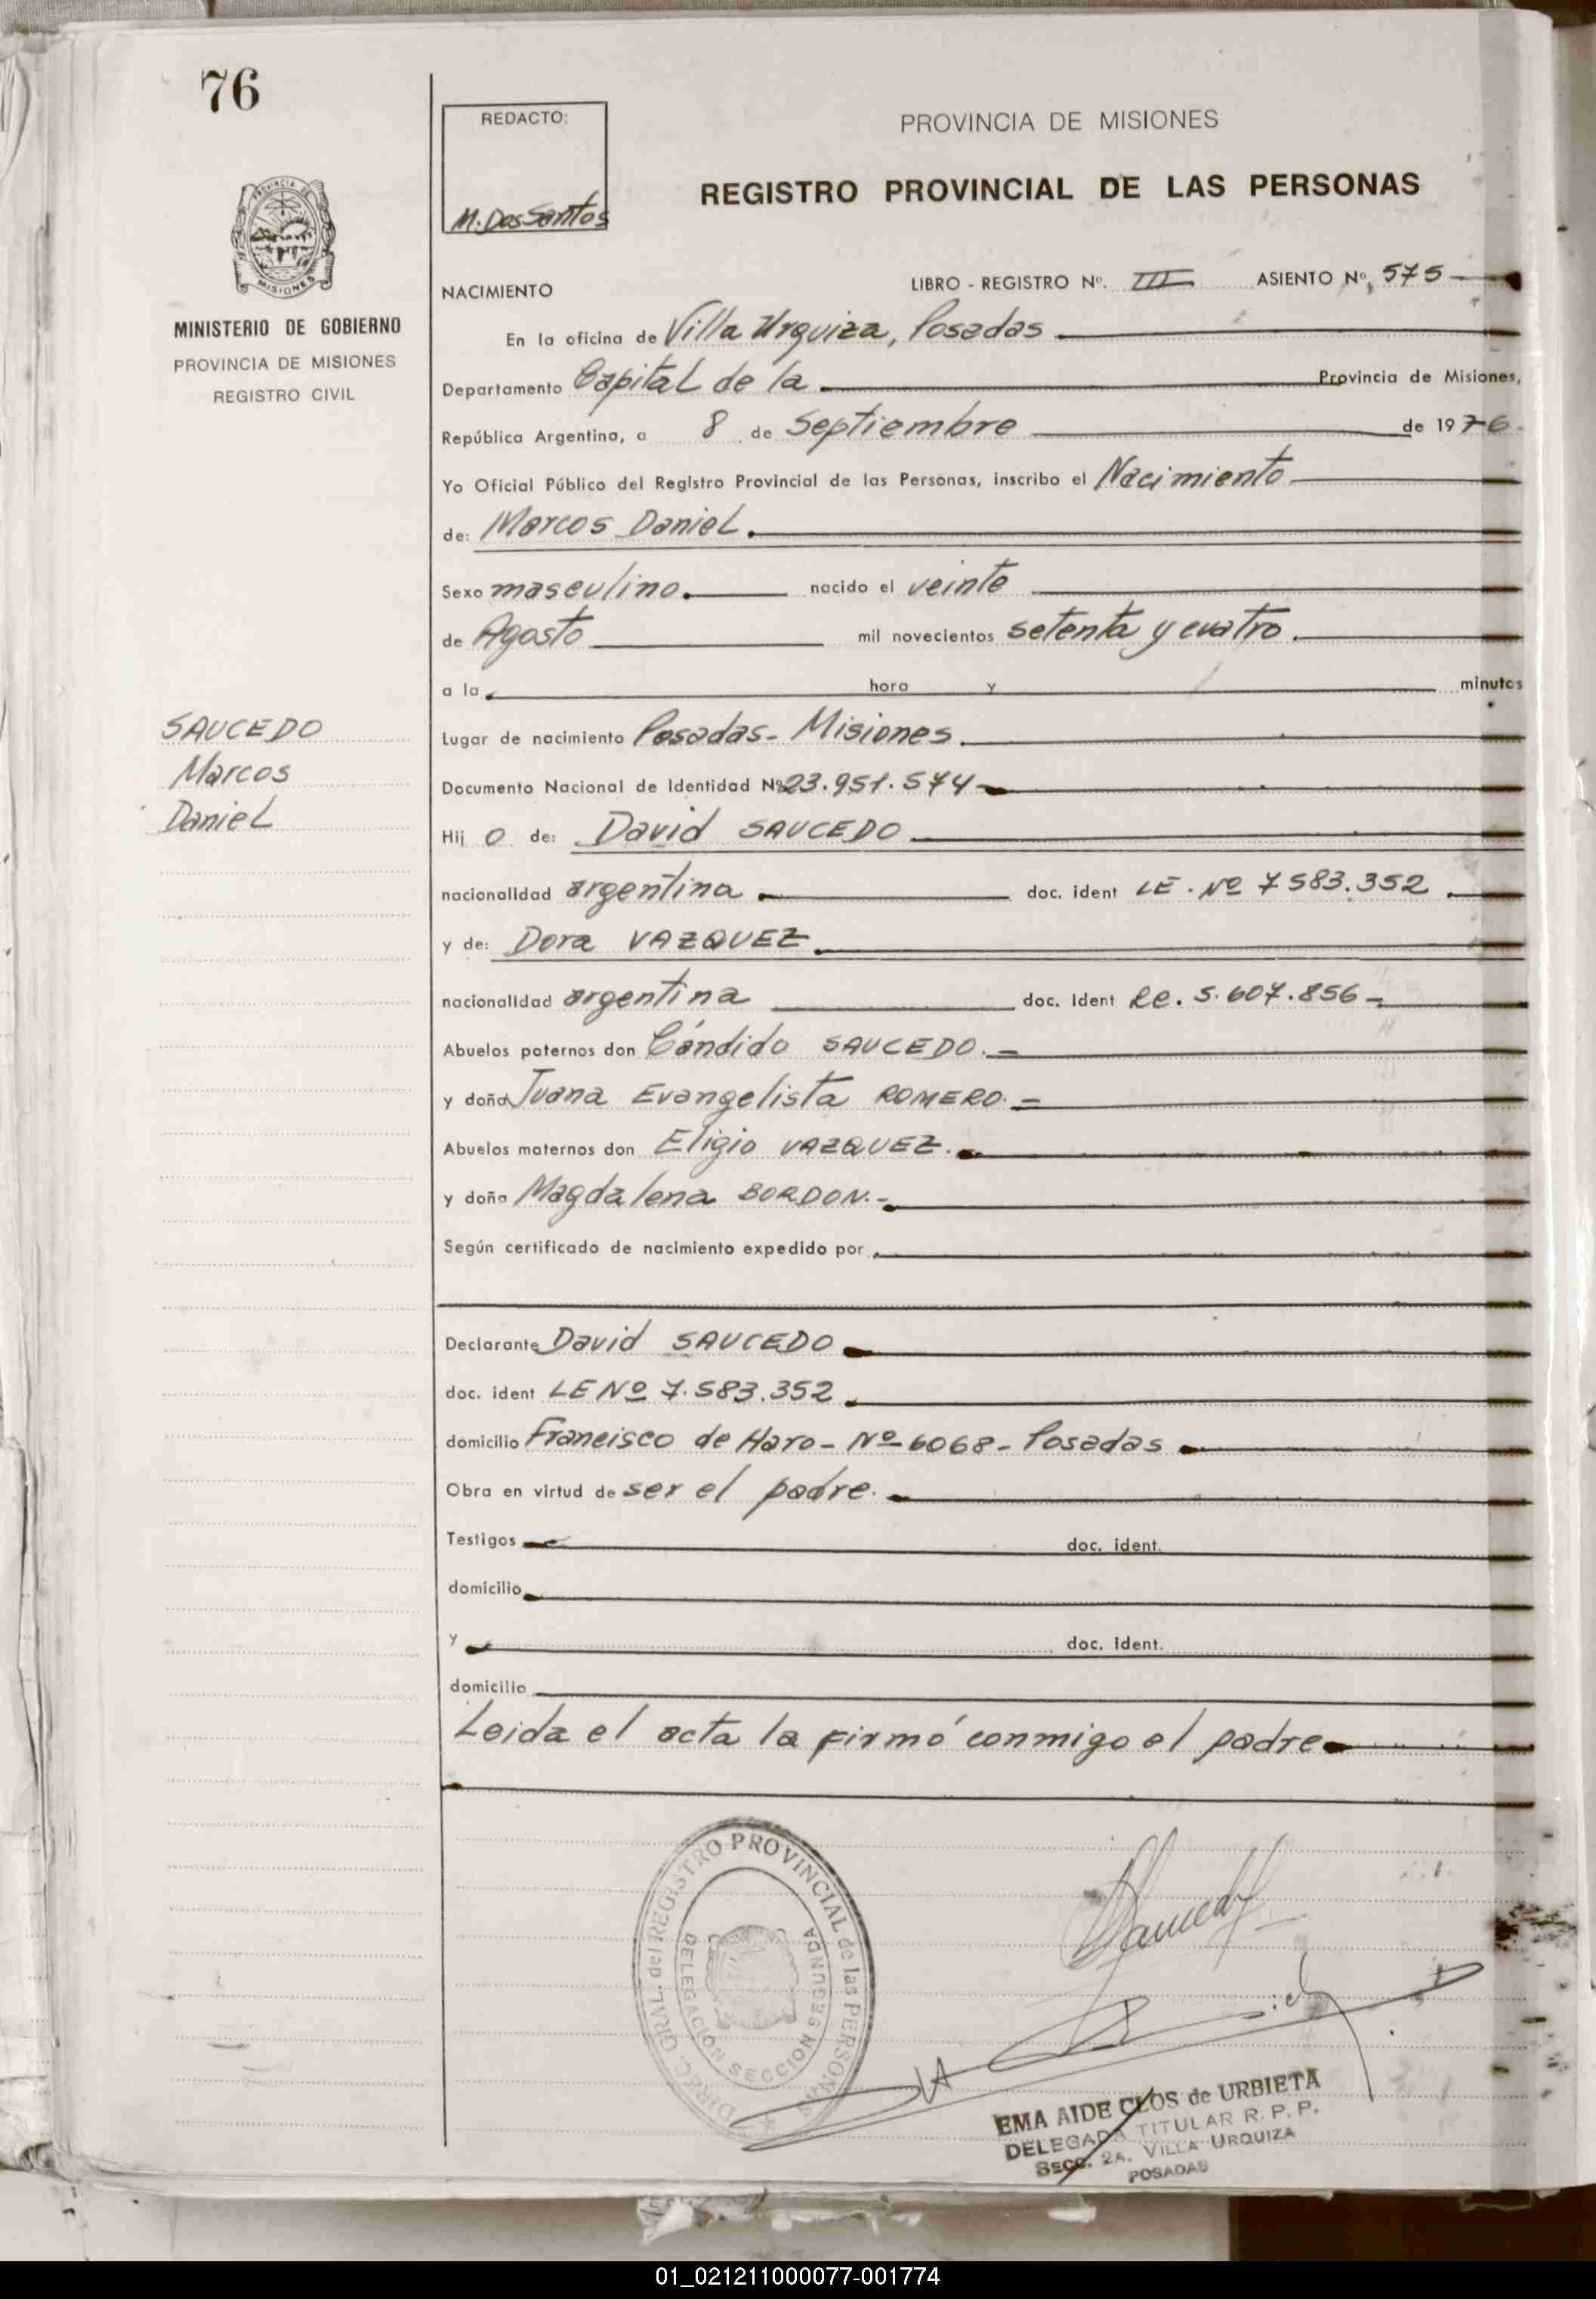 76
REDACTO:
M. Dos Santos
PROVINCIA DE MISIONES
REGISTRO PROVINCIAL DE LAS PERSONAS
PROVINCIA DE
MISIONES
MINISTERIO DE GOBIERNO
PROVINCIA DE MISIONES
REGISTRO CIVIL
NACIMIENTO LIBRO - REGISTRO Nº. III ASIENTO Nº, 575
En la oficina de Villa Urquiza, Posadas
Departamento Capital de la Provincia de Misiones,
República Argentina, a 8 de Septiembre de 1976.
Yo Oficial Público del Registro Provincial de las Personas, inscribo el Nacimiento
de: Marcos Daniel.
Sexo masculino. nacido el veinte
de Agosto mil novecientos setenta y cuatro.
a la hora y minutos
SAUCEDO
Marcos
Daniel
Lugar de nacimiento Posadas- Misiones.
Documento Nacional de Identidad Nº 23.951.574
Hij o de: David SAUCEDO
nacionalidad argentina doc. ident LE. Nº 7583.352
y de: Dora VAZQUEZ
nacionalidad argentina doc. ident Lc. 5.607.856-
Abuelos paternos don Cándido SAUCEDO.-
y doña Juana Evangelista ROMERO.-
Abuelos maternos don Eligio VAZQUEZ.
y doña Magdalena BORDON.-
Según certificado de nacimiento expedido por
Declarante David SAUCEDO
doc. ident LE Nº 7.583.352
domicilio Francisco de Haro- Nº 6068- Posadas
Obra en virtud de ser el padre.
Testigos doc. ident.
domicilio
y doc. ident.
domicilio
Leida el acta la firmó conmigo el padre
DIREC. GRAL. del REGISTRO PROVINCIAL de las PERSONAS
DELEGACION SECCION SEGUNDA
EMA AIDE CLOS de URBIETA
DELEGADA TITULAR R. P. P.
SECC. 2A. VILLA URQUIZA
POSADAS
01_021211000077-001774